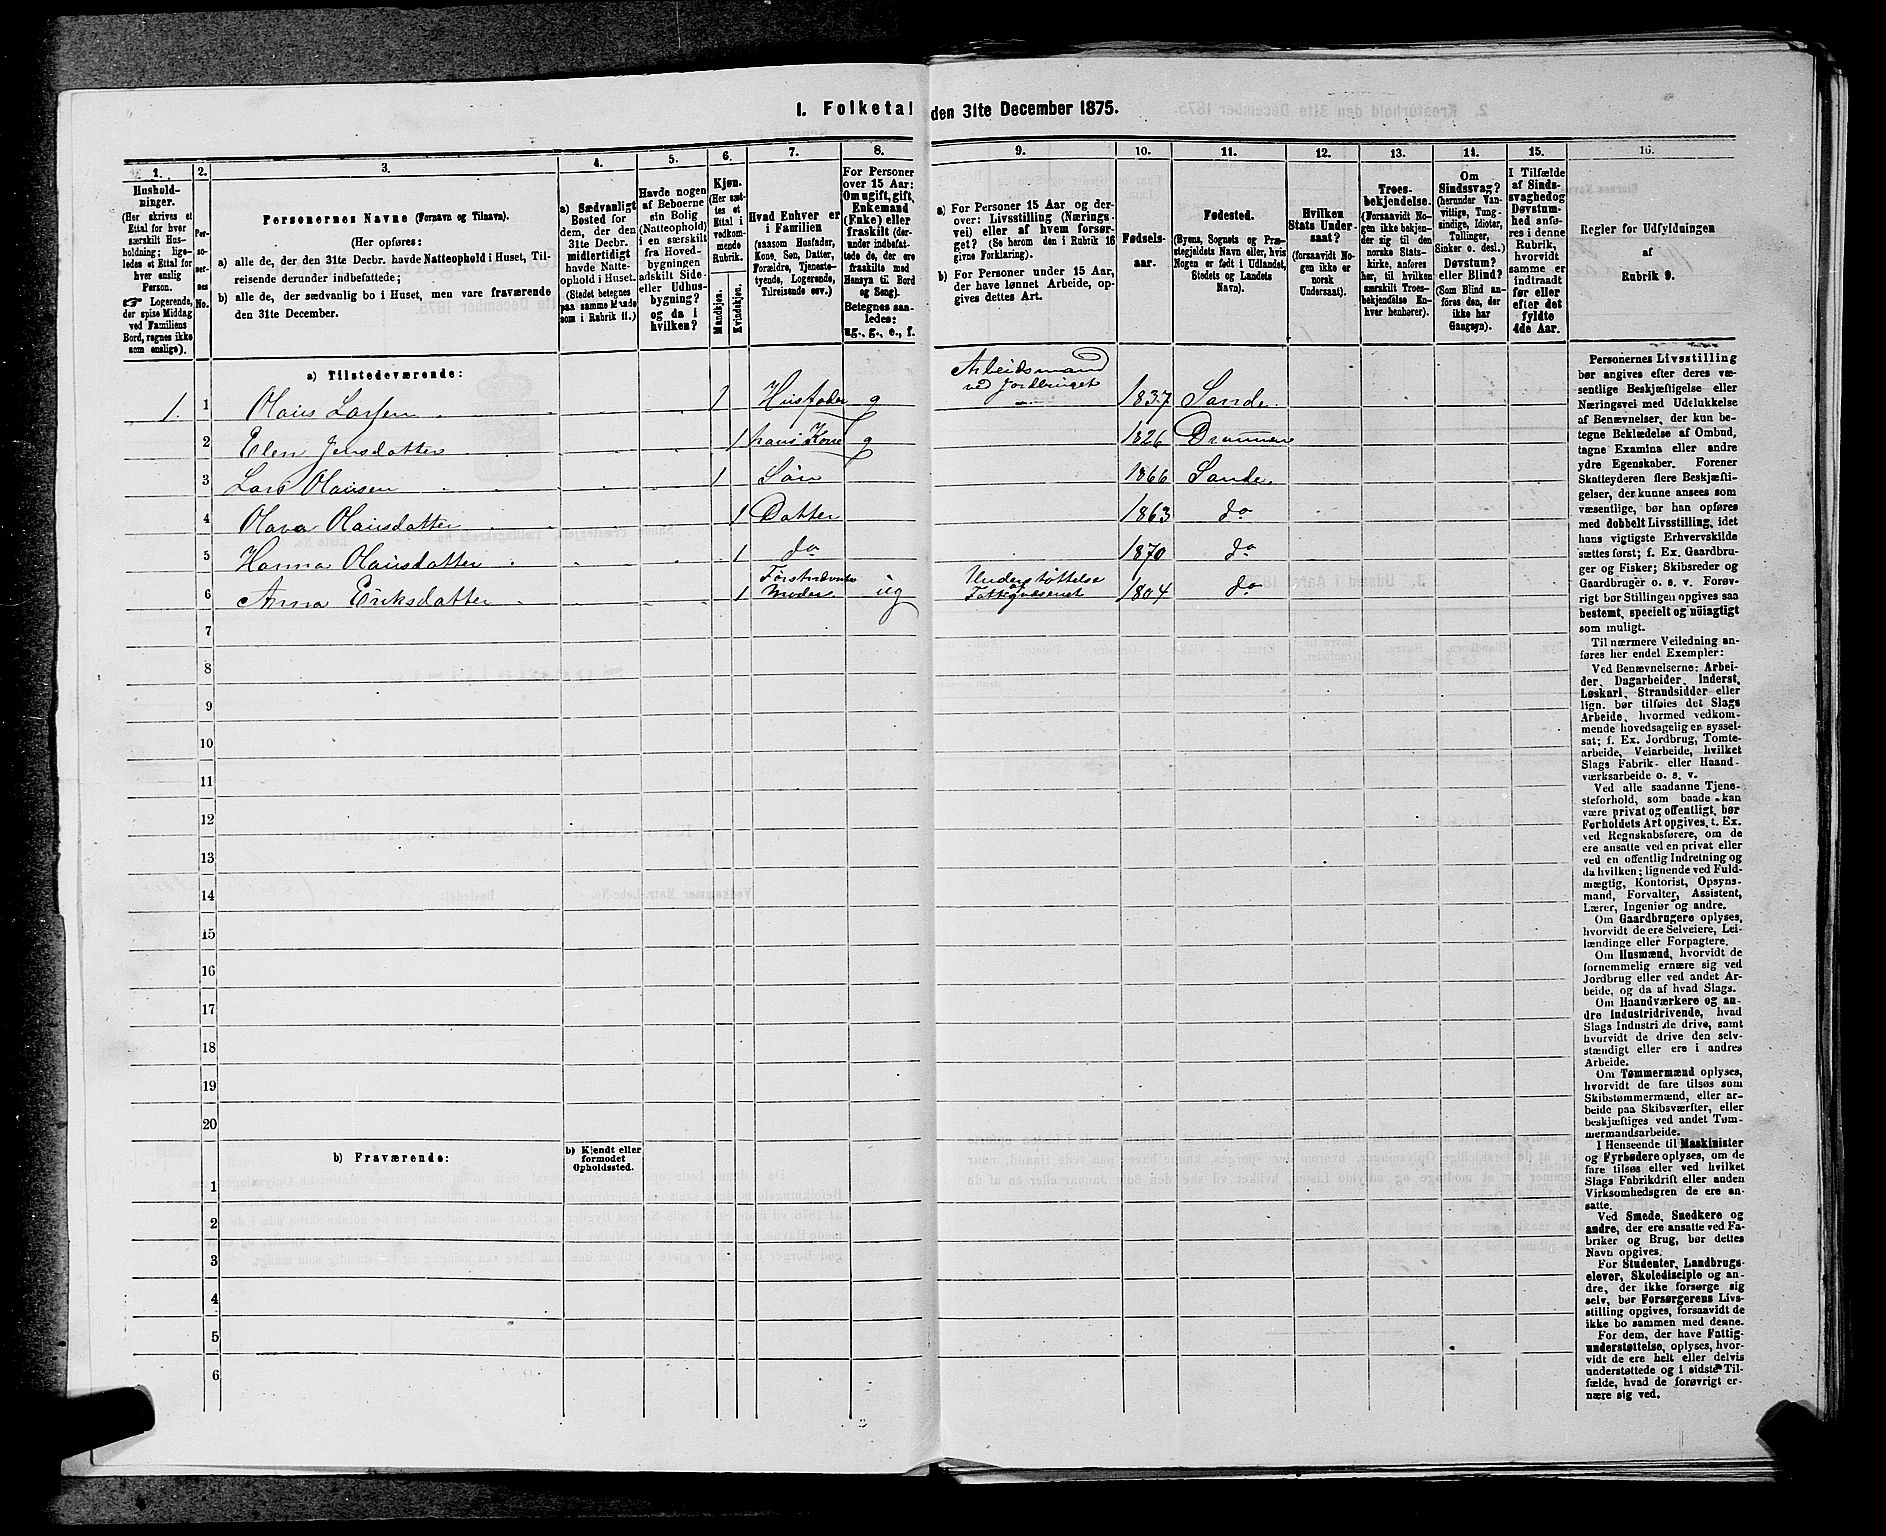 1. Folketal den 31te December 1875.
1. 2. 3. 4. 5. 6. 7. 8. 9. 10. 11. 12. 13. 14. 15. 16.
Hushold-
ninger.
(Her skrives et
Ettal for hver
særskilt Hus-
holdning; lige-
ledes et Ettal for
hver enslig
Person.
☞ Logerende,
der spise Middag
ved Familiens
Bord, regnes ikke
som enslige).
Per-
so-
ner-
nes
No.
Personernes Navne (Fornavn og Tilnavn).
(Her opføres:
a) alle de, der den 31te Decbr. havde Natteophold i Huset, Til-
reisende derunder indbefattede;
b) alle de, der sædvanlig bo i Huset, men vare fraværende
den 31te December.
a) Sædvanligt
Bosted for
dem, der den
31te Decbr.
midlertidigt
havde Natte-
ophold i Huset.
(Stedet betegnes
paa samme Maade
som i Rubrik 11.)
Havde nogen
af Beboerne
sin Bolig
(Natteophold)
i en særskilt
fra Hoved-
bygningen
adskilt Side-
eller Udhus-
bygning?
og da i
hvilken?
Kjøn.
(Her sæt-
tes et
Ettal i
vedkom-
mende
Rubrik.
Mandkjøn.
Kvindekjøn.
Hvad Enhver er
i Familien
(saasom Husfader,
Kone, Søn, Datter,
Forældre, Tjeneste-
tyende, Logerende,
Tilreisende osv.)
For Personer
over 15 Aar:
Om ugift, gift,
Enkemand
(Enke) eller
fraskilt (der-
under indbefat-
tede de, der ere
fraskilte med
Hensyn til Bord
og Seng).
Betegnes saa-
ledes:
ug., g., e., f.
a) For Personer 15 Aar og der-
over: Livsstilling (Nærings-
vei) eller af hvem forsør-
get? (Se herom den i Rubrik 16
givne Forklaring).
b) For Personer under 15 Aar,
der have lønnet Arbeide, op-
gives dettes Art.
Fødsels-
aar.
Fødested.
(Byens, Sognets og Præ-
stegjeldets Navn eller, hvis
Nogen er født i Udlandet,
Stedets og Landets
Navn).
Hvilken
Stats Under-
saat?
(forsaavidt No-
gen ikke er
norsk
Undersaat).
Troes-
bekjendelse.
(Forsaavidt No-
gen ikke bekjen-
der sig til den
norske Stats-
kirke, anføres
her, til hvilken
særskilt Troes-
bekjendelse En-
hver henhører).
Om
Sindssvag?
(herunder Van-
vittige, Tung-
sindige, Idioter,
Tullinger,
Sinker o. desl.)
Døvstum?
eller Blind?
(Som Blind an-
føres den, der
ikke har
Gangsyn).
I Tilfælde
af Sinds-
svaghed og
Døvstum-
hed anfø-
res i denne
Rubrik,
hvorvidt
samme er
indtraadt
før eller
efter det
fyldte
4de Aar.
Regler for Udfyldningen
af
Rubrik 9.
a) Tilstedeværende:
Arbeidsmand
ved Jordbruget
1. 1 Olaus Larsen 1 Husfader g 1837 Sande
2 Elen Jensdatter 1 hans Kone g 1826 Drammen
3 Lars Olausen 1 Søn 1866 Sande.
4 Olava Olausdatter 1 Datter 1863 do
5 Hanna Olausdatter 1 do 1870 do
6 Anna Eriksdatter 1 Moder ug Understøttelse af Fattigvæsenet 1804 do
7
8
9
10
11
12
13
14
15
16
17
18
19
20
b) Fraværende:
b) Kjendt eller
formodet
Opholdssted.
1
2
3
4
5
6
Personernes Livsstilling
bør angives efter deres væ-
sentlige Beskjæftigelse eller
Næringsvei med Udelukkelse
af Benævnelser, der kun be-
tegne Beklædelse af Ombud,
tagne Examina eller andre
ydre Egenskaber. Forener
Skatteyderen flere Beskjæfti-
gelser, der kunne ansees som
væsentlige, bør han opføres
med dobbelt Livsstilling, idet
hans vigtigste Erhvervskilde
sættes først; f. Ex. Gaardbru-
ger og Fisker; Skibsreder og
Gaardbruger o. s. v. Forøv-
rigt bør Stillingen opgives saa
bestemt, specielt og nøiagtigt
som muligt.
Til nærmere Veiledning an-
føres her endel Exempler:
Ved Benævnelserne: Arbei-
der, Dagarbeider, Inderst,
Løskarl, Strandsidder eller
lign. bør tilføies det Slags
Arbeide, hvormed vedkom-
mende hovedsagelig er syssel-
sat; f. Ex. Jordbrug, Tomte-
arbeide, Veiarbeide, hvilket
Slags Fabrik- eller Haand-
værksarbeide o. s. v.
Ved alle saadanne Tjene-
steforhold, som baade kan
være privat og offentligt, bør
Forholdets Art opgives, t. Ex.
ved Regnskabsførere, om de
ere ansatte ved en privat eller
ved en offentlig Indretning og
da hvilken; lignende ved Fuld-
mægtig, Kontorist, Opsyns-
mand, Forvalter, Assistent,
Lærer, Ingeniør og andre.
Om Gaardbrugere oplyses,
hvorvidt de ere Selveiere, Lei-
lændinge eller Forpagtere.
Om Husmænd, hvorvidt de
fornemmelig ernære sig ved
Jordbrug eller ved andet Ar-
beide, og da af hvad Slags.
Om Haandværkere og an-
dre Industridrivende, hvad
Slags Industri de drive, samt
hvorvidt de drive den selv-
stændigt eller ere i andres
Arbeide.
Om Tømmermænd oplyses,
hvorvidt de fare tilsøs som
Skibstømmermænd, eller ar-
beide paa Skibsværfter, eller
beskjæftiges ved andet Tøm-
mermandsarbeide.
I Henseende til Maskinister
og Fyrbødere oplyses, om de
fare tilsøs eller ved hvilket
Slags Fabrikdrift eller anden
Virksomhedsgren de ere an-
satte.
Ved Smede, Snedkere og
andre, der ere ansatte ved Fa-
briker og Brug, bør dettes
Navn opgives.
For Studenter, Landbrugs-
elever, Skoledisciple og an-
dre, der ikke forsørge sig
selv, bør Forsørgerens Livs-
stilling opgives, forsaavidt de
ikke bo sammen med denne.
For dem, der have Fattig-
understøttelse, oplyses, hvor-
vidt de ere helt eller delvis
understøttede og i sidste Til-
fælde, hvad de forøvrigt er-
nære sig ved.